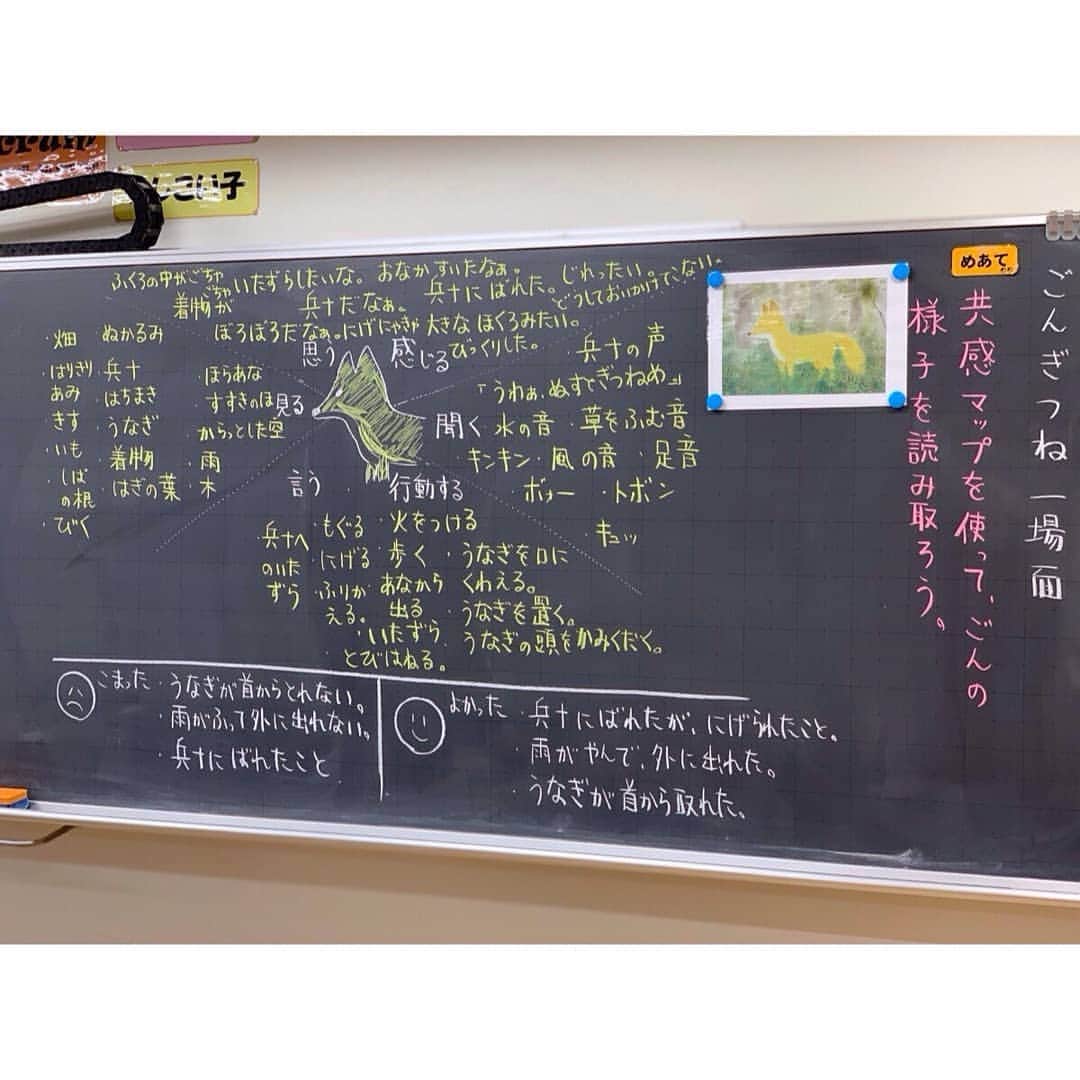 ごんぎつね 一場面
めあて
共感マップを使って、ごんの
様子を読み取ろう。
ふくろの中がごちゃごちゃ
いたずらしたいな。
おなかすいたなぁ。
じれったい。
どうしておいかけてこない。
着物が
ぼろぼろだなぁ。
兵十だなぁ。
兵十にばれた。
にげにゃきゃ
大きなほくろみたい。
びっくりした。
思う 感じる
見る
・畑
・はりきり
あみ
きす
・いも
・しば
の根
・びく
ぬかるみ
兵十
・はちまき
・うなぎ
着物
はぎの葉
・ほらあな
・すすきのほ
・からっとした空
・雨
・木
聞く
・兵十の声
「うわぁ、ぬすとぎつねめ」
水の音 ・草をふむ音
キンキン・風の音 ・足音
・ボォー ・トボン
・キュッ
言う
行動する
・兵十へ
のいた
ずら
・もぐる
・にげる
・ふりか
える。
・火をつける
・歩く
・あなから
出る
・いたずら
・とびはねる。
・うなぎを口に
くわえる。
・うなぎを置く。
・うなぎの頭をかみくだく。
こまった
・うなぎが首からとれない。
・雨がふって外に出れない。
・兵十にばれたこと
よかった
・兵十にばれたが、にげられたこと。
・雨がやんで、外に出れた。
・うなぎが首から取れた。
こい子